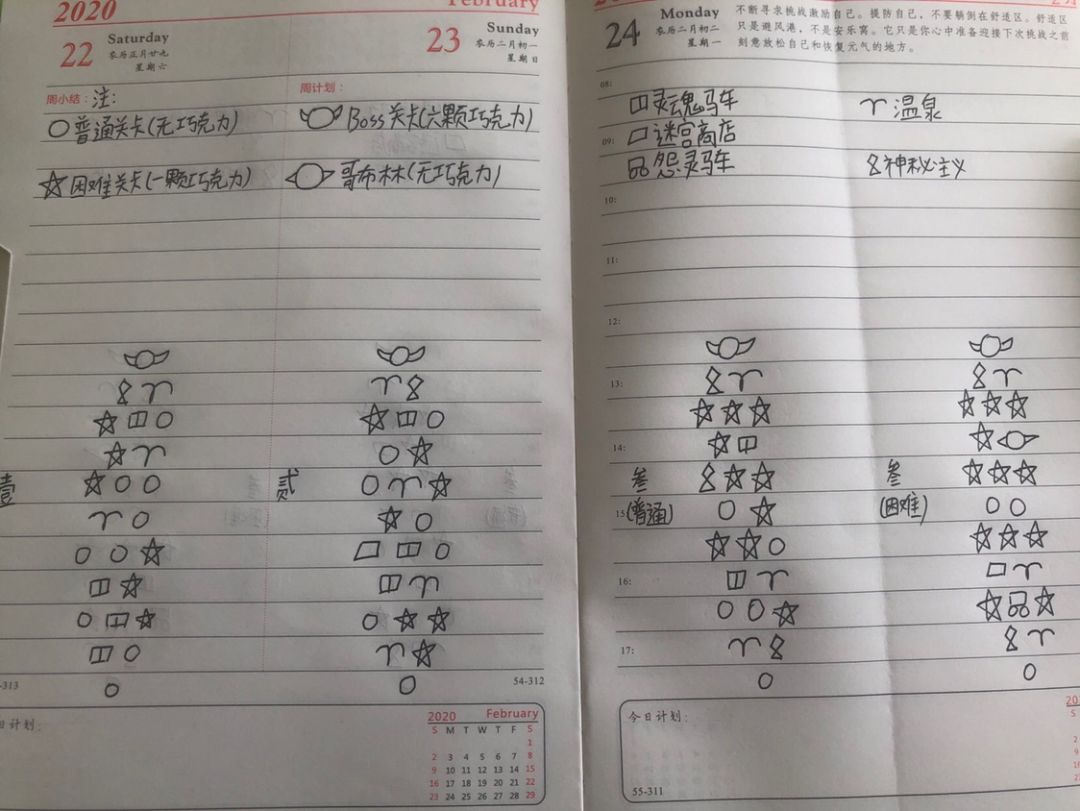 2020
February
22
Saturday
农历正月廿九
星期六
23
Sunday
农历二月初一
星期日
周小结：注:
周计划：
○普通关卡(无巧克力)
Boss关卡(六颗巧克力)
☆困难关卡(一颗巧克力)
哥布林(无巧克力)
壹
贰
54-313
54-312
日计划：
2020 February
S M T W T F S
1
2 3 4 5 6 7 8
9 10 11 12 13 14 15
16 17 18 19 20 21 22
23 24 25 26 27 28 29
24
Monday
农历二月初二
星期一
不断寻求挑战激励自己。提防自己，不要躺倒在舒适区。舒适区
只是避风港，不是安乐窝。它只是你心中准备迎接下次挑战之前
刻意放松自己和恢复元气的地方。
08:
灵魂马车
温泉
09:
迷宫商店
怨灵马车
神秘主义
10:
11:
12:
13:
14:
叁
叁
15:
(普通)
(困难)
16:
17:
今日计划：
55-311